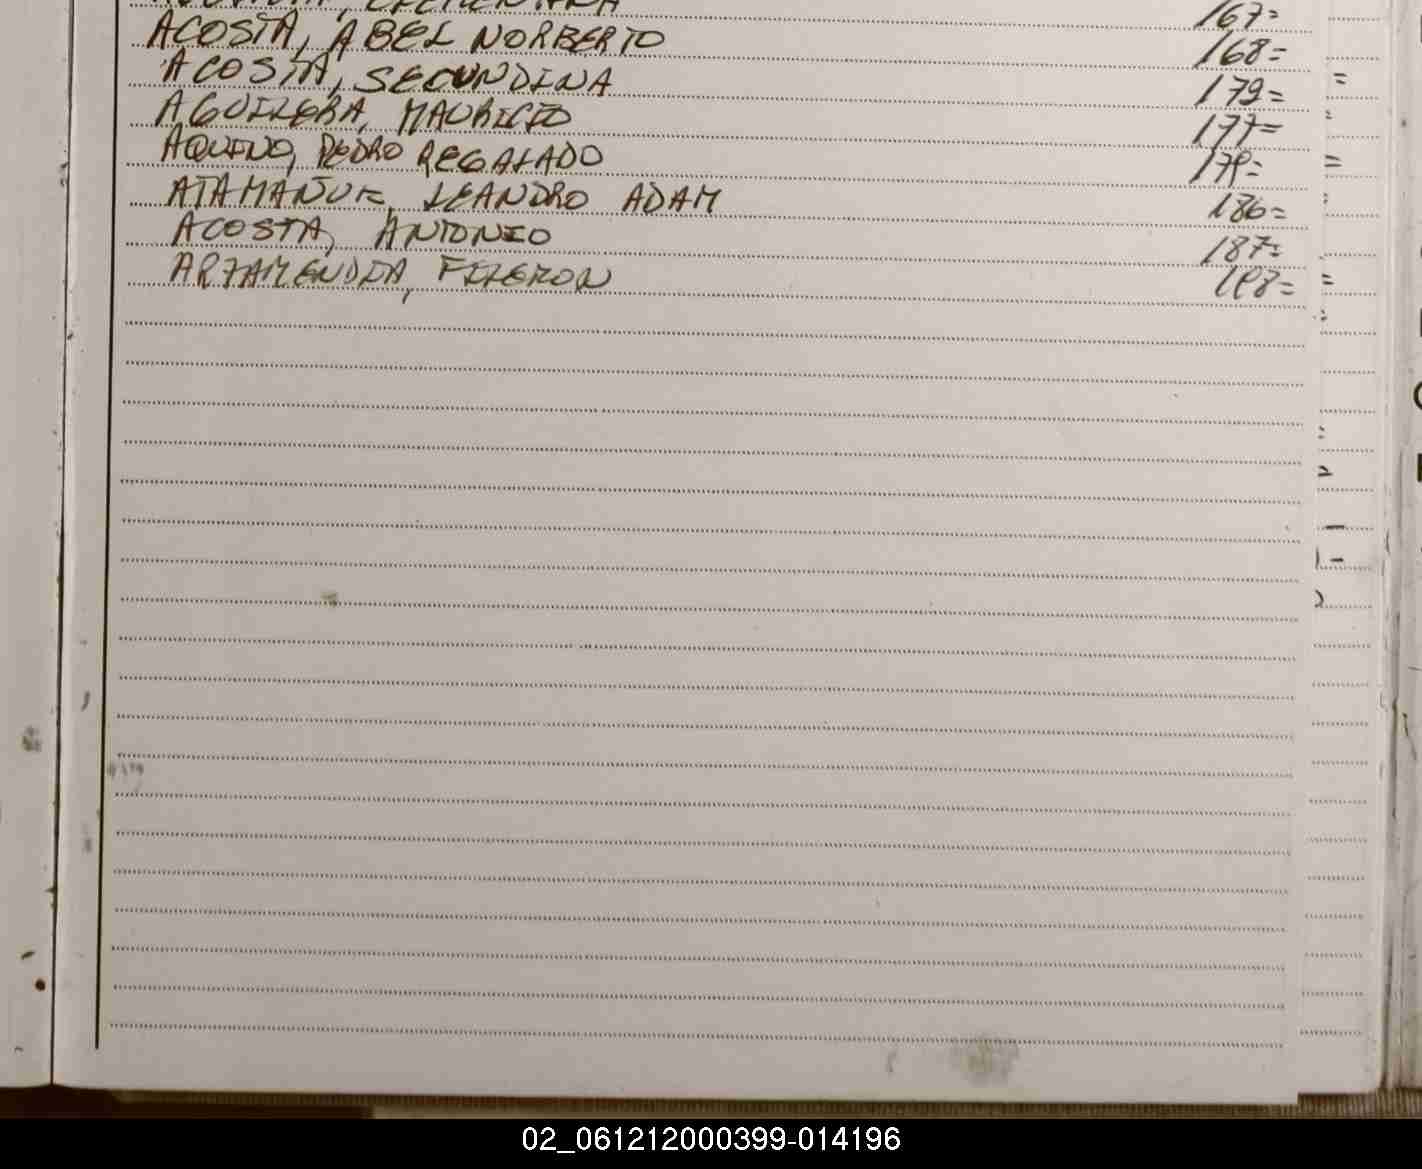 167=
ACOSTA, ABEL NORBERTO 168=
ACOSTA, SECUNDINA 179=
AGUILERA, MAURICIO 177=
AQUINO, PEDRO REGALADO
LEANDRO ADAM 186=
ACOSTA, ANTONIO 187=
ARZAMENDIA, FILEMON
02_061212000399-014196